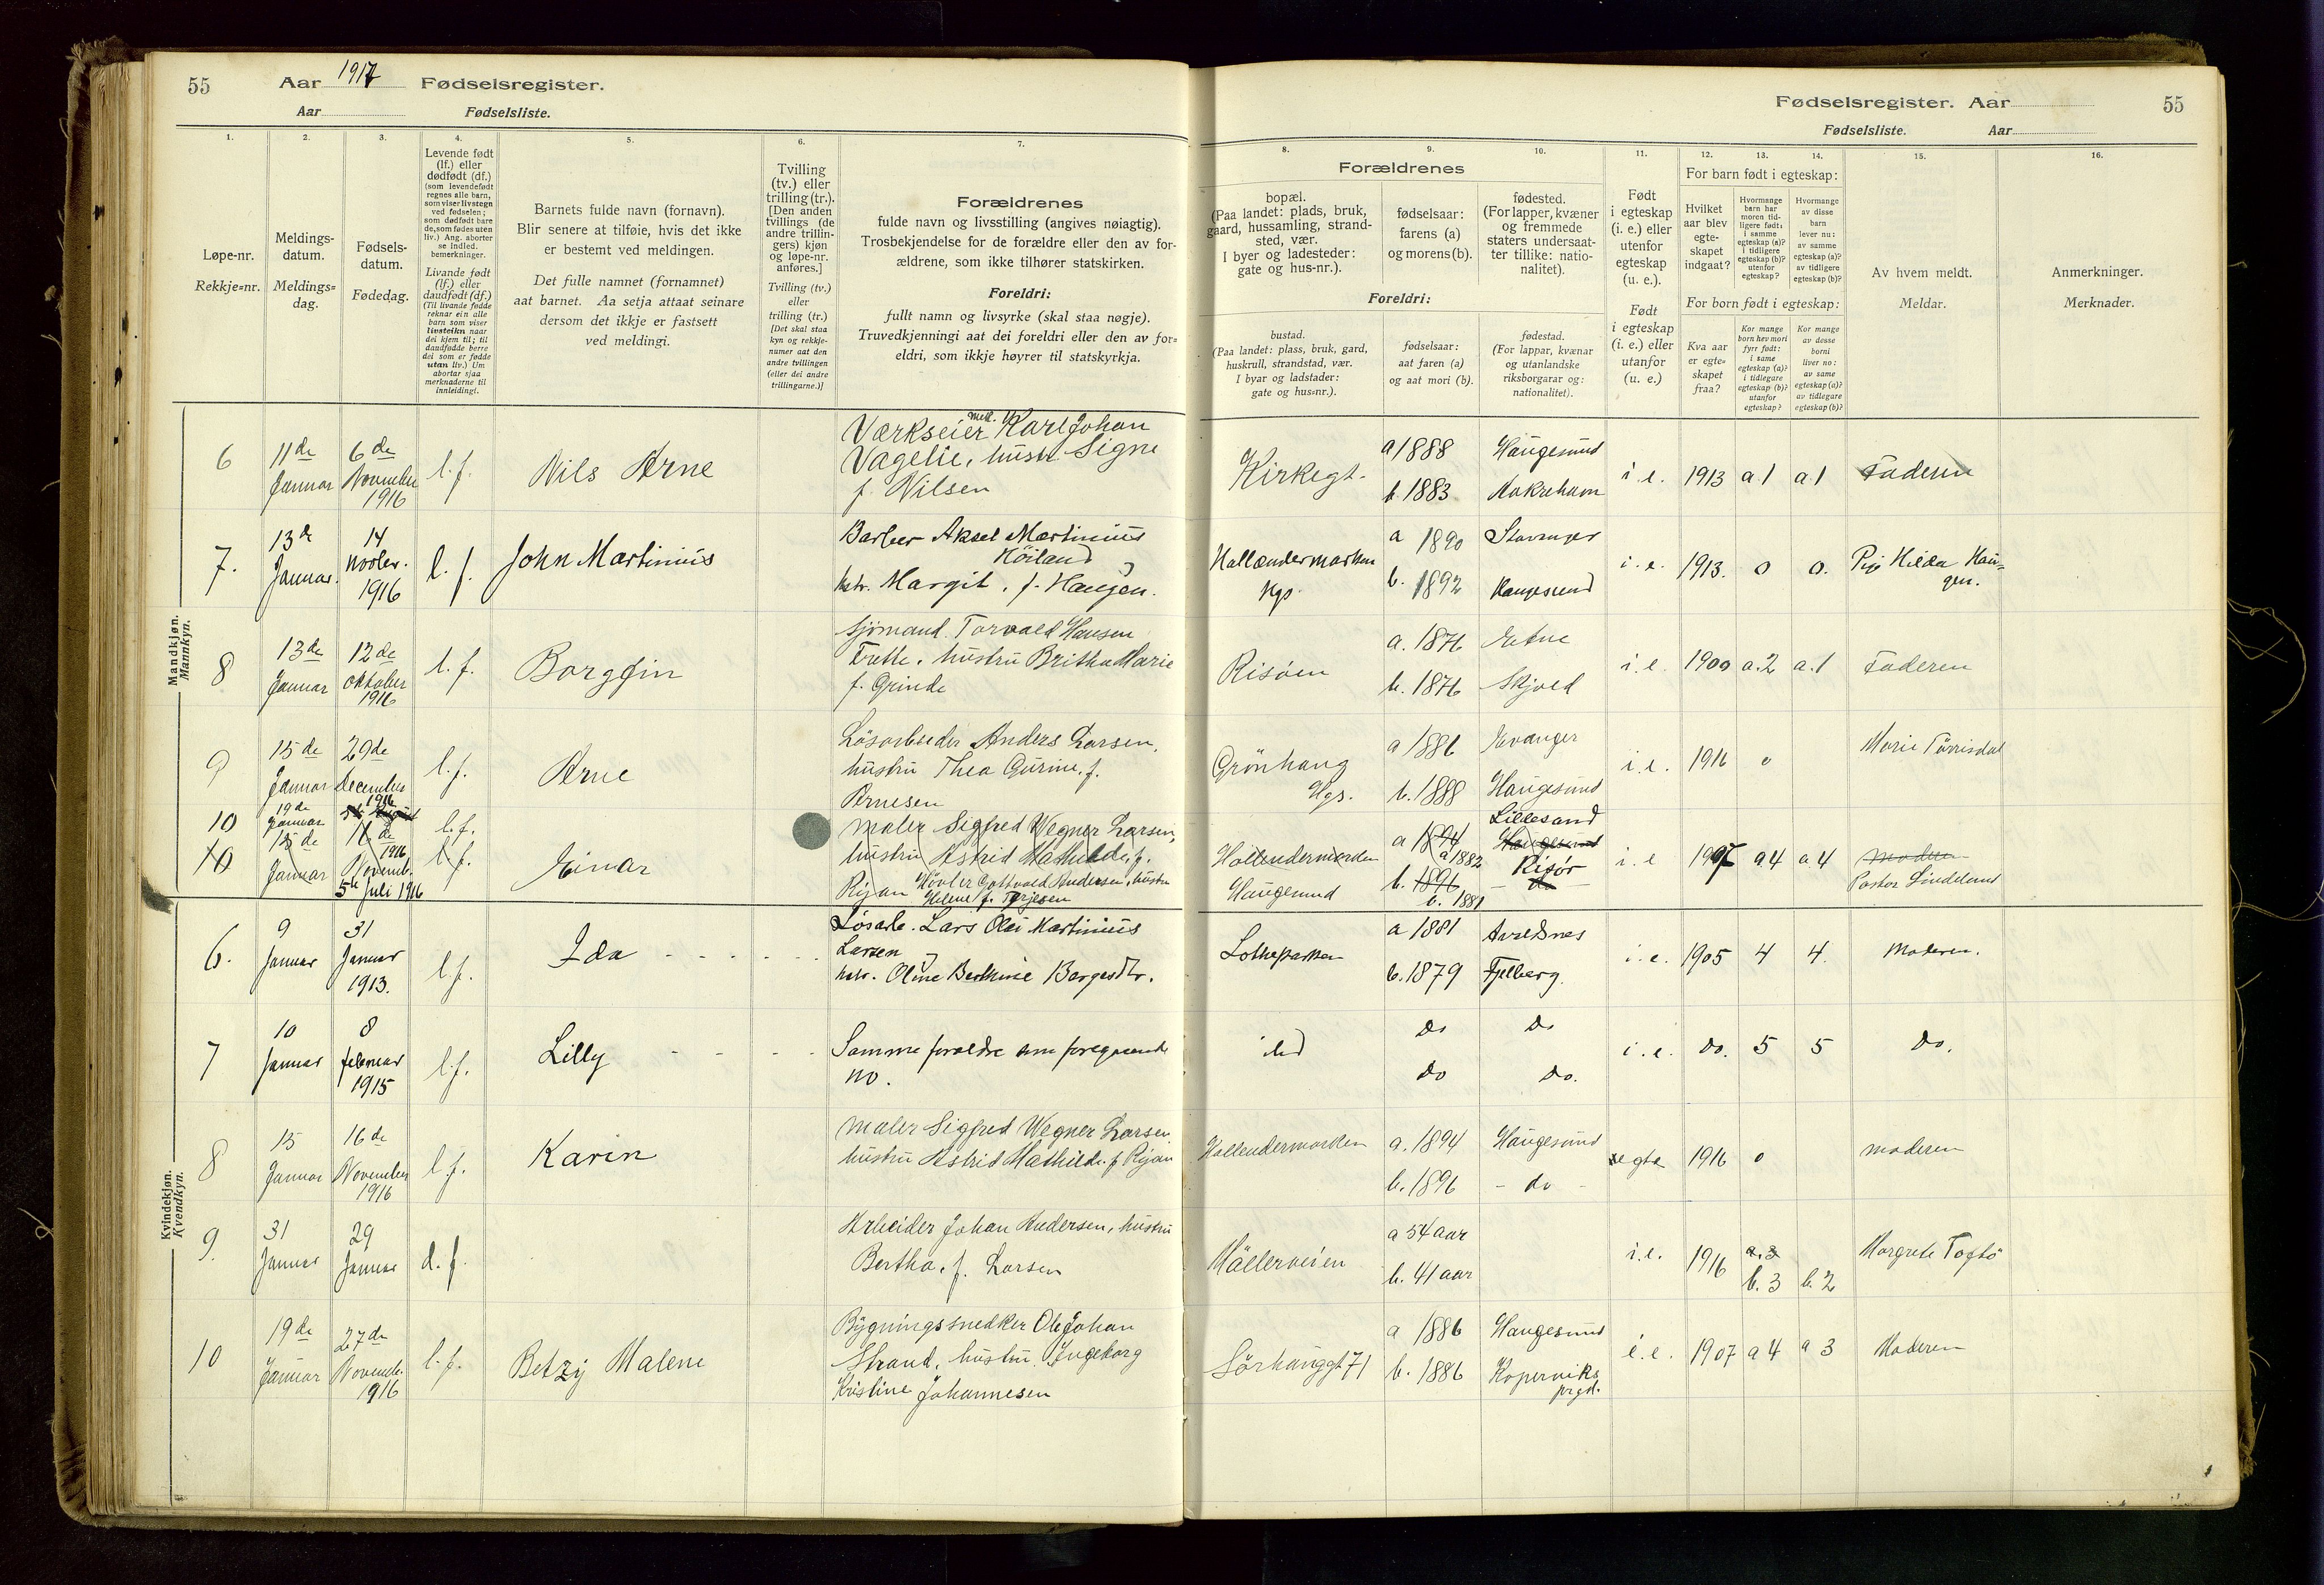 55 Aar 1917 Fødselsregister.
Aar Fødselsliste.
Fødselsregister. Aar 55
Fødselsliste. Aar
1. 2. 3. 4. 5. 6. 7.
Løpe-nr.
Rekkje-nr.
Meldings-
datum.
Meldings-
dag.
Fødsels-
datum.
Fødedag.
Levende født
(lf.) eller
dødfødt (df.)
(som levendefødt
regnes alle barn,
som viser livstegn
ved fødselen;
som dødfødt bare
de, som fødes uten
liv.) Ang. aborter
se Indled.
bemerkninger.
Livande født
(lf.) eller
daudfødt (df.)
(Til livande fødde
reknar ein alle
barn som viser
livsteikn naar
dei kjem til; til
daudfødde berre
dei som er fødde
utan liv.) Um
abortar sjaa
merknaderne til
innleiding.
Barnets fulde navn (fornavn).
Blir senere at tilføie, hvis det ikke
er bestemt ved meldingen.
Det fulle namnet (fornamnet)
aat barnet. Aa setja attaat seinare
dersom det ikkje er fastsett
ved meldingi.
Tvilling
(tv.) eller
trilling (tr.).
[Den anden
tvillings (de
andre trillin-
gers) kjøn
og løpe-nr.
anføres.]
Tvilling (tv.)
eller
trilling (tr.)
[Det skal staa
kyn og rekkje-
numer aat den
andre tvillingen
(eller dei andre
trillingarne.)]
Forældrenes
fulde navn og livsstilling (angives nøiagtig).
Trosbekjendelse for de forældre eller den av for-
ældrene, som ikke tilhører statskirken.
Foreldri:
fullt namn og livsyrke (skal staa nøgje).
Truvedkjenningi aat dei foreldri eller den av for-
eldri, som ikkje høyrer til statskyrkja.
8. 9. 10. 11. 12. 13. 14. 15. 16.
Forældrenes
bopæl.
(Paa landet: plads, bruk,
gaard, hussamling, strand-
sted, vær.
I byer og ladesteder:
gate og hus-nr.).
fødselsaar:
farens (a)
og morens (b).
fødested.
(For lapper, kvæner
og fremmede
staters undersaat-
ter tillike: natio-
nalitet).
Foreldri:
bustad.
(Paa landet: plass, bruk, gard,
huskrull, strandstad, vær.
I byar og ladstader:
gate og hus-nr.).
fødselsaar:
aat faren (a)
og aat mori (b).
fødestad.
(For lappar, kvænar
og utanlandske
riksborgarar og:
nationalitet).
Født
i egteskap
(i. e.) eller
utenfor
egteskap
(u. e.).
Født
i egteskap
(i. e.) eller
utanfor
(u. e.)
For barn født i egteskap:
Hvilket
aar blev
egte-
skapet
indgaat?
Hvormange
barn har
moren tid-
ligere født:
i samme
egteskap (a)?
i tidligere
egteskap (b)?
utenfor
egteskap?
Hvormange
av disse
barn
lever nu:
av samme
egteskap (a)?
av tidligere
egteskap (b)?
For born født i egteskap:
Kva aar
er egte-
skapet
fraa?
Kor mange
born hev mori
fyrr født:
i same
egteskap (a)?
i tidlegare
egteskap (b)?
utanfor
egteskap?
Kor mange
av desse
borni
liver no:
av same
egteskap (a)?
av tidlegare
egteskap (b)?
Av hvem meldt.
Meldar.
Anmerkninger.
Merknader.
Mandkjøn.
Mannkyn.
6 11de Januar 6de November 1916 l.f. Nils Arne
Værkseier mek. Karl Johan
Vagelie, hustr. Signe
f. Nilsen
Kirkegt. a 1888 Haugesund
b. 1883 Aakrehavn
i.e. 1913 a 1 a 1 Faderen
7. 13de Januar. 14 Novbr. 1916 l.f. John Martinius
Barber Aksel Martinius
Høiland
hstr. Margit, f. Haugen.
Hallendermarken Hgs. a 1890 Stavanger
b. 1892 Haugesund
i.e. 1913. 0 0. Pig. Hilda Hau-
gen.
8 13de Januar 12de Oktober 1916 l.f. Borgfin
Sjømand Torvald Hansen
Trette, hustru Britha Marie
f. Grinde
Risøen a. 1876 Etne
b. 1876 Skjold
i.e. 1900 a.2 a.1 Faderen
9 15de Januar 29de December 1916 l.f. Arne
Løsarbeider Anders Larsen,
hustru Thea Gurine, f.
Arnesen
Grønhaug Hgs. a 1886 Evanger
b. 1888 Haugesund
i.e. 1916 0 Marie Tørrisdal
10 19de Januar l.f.
10 15de Januar 16de Novemb. 1916 l.f. Einar
5te Juli 1916
Maler Sigfred Wegner Larsen,
hustru Astrid Mathilde, f.
Rijan Høvler Gottvald Andersen, hustru
Helene f. Terjesen
Hallendermarken
Haugesund
a 1894 a 1882
b. 1896 b. 1881
Lillesand
Haugesund
Risør
do
i.e 1907 a 4 a 4 moderen
Pastor Lindeland
Kvindekjøn.
Kvendkyn.
6. 9 Januar 31 Januar 1913. l.f. Ida
Løsarb. Lars Olai Martinius
Larsen
hstr. Oline Berthine Borgesdtr.
Lotheparken a 1881 Avaldsnes
b. 1879 Fjelberg.
i.e. 1905 4 4. Moderen.
7 10 Januar 8 februar 1915 l.f. Lilly
Samme forældre som foregaaende
no.
ibd do do
do do.
i.e. do. 5 5 do.
8 15 Januar 16de November 1916 l.f. Karin
Maler Sigfred Wegner Larsen
hustru Astrid Mathilde f Rijan
Hallendermarken a. 1894 Haugesund
b. 1896 - do -
egte 1916 0 moderen
9. 31 Januar 29 Januar d.f.
Arbeider Johan Andersen, hustru
Bertha, f. Larsen
Møllerveien a 54 aar
b. 41 aar
i.e. 1916 b. 3 b. 2 Margrete Toftø
10 19de Januar 27de Novemb. 1916 l.f. Betzy Malene
Bygningssnedker Ole Johan
Strand, hustru Ingeborg
Kristine Johannesen
Sørhauggt 71 a 1886 Haugesund
b. 1886 Koperviks
prgd.
i.e. 1907 a 4 a 3 Moderen